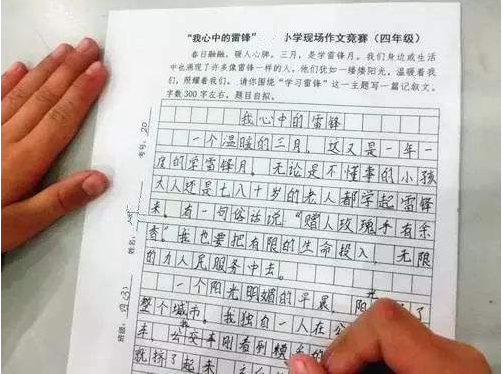 “我心中的雷锋” 小学现场作文竞赛（四年级）
春日融融，暖人心脾。三月，是学雷锋月。我们身边或生活
中也涌现了许多像雷锋一样的人。他们犹如一缕缕阳光，温暖着我
们，照耀着我们。请你围绕“学习雷锋”这一主题写一篇记叙文。
字数300字左右，题目自拟。
我心中的雷锋
一个温暖的三月，这又是一年一
度的学雷锋月。无论是不懂事的小孩
大人还是七八十岁的老人都学起雷锋
来。有一句俗话说“赠人玫瑰手有余
香”我也要把有限的生命投入，无限
的为人民服务中去。
一个阳光明媚的早晨，阳
整个城市。我独自一人在公
车，公交车刚看到
就挤了起来
考号：20
姓名：
班级：四(3)